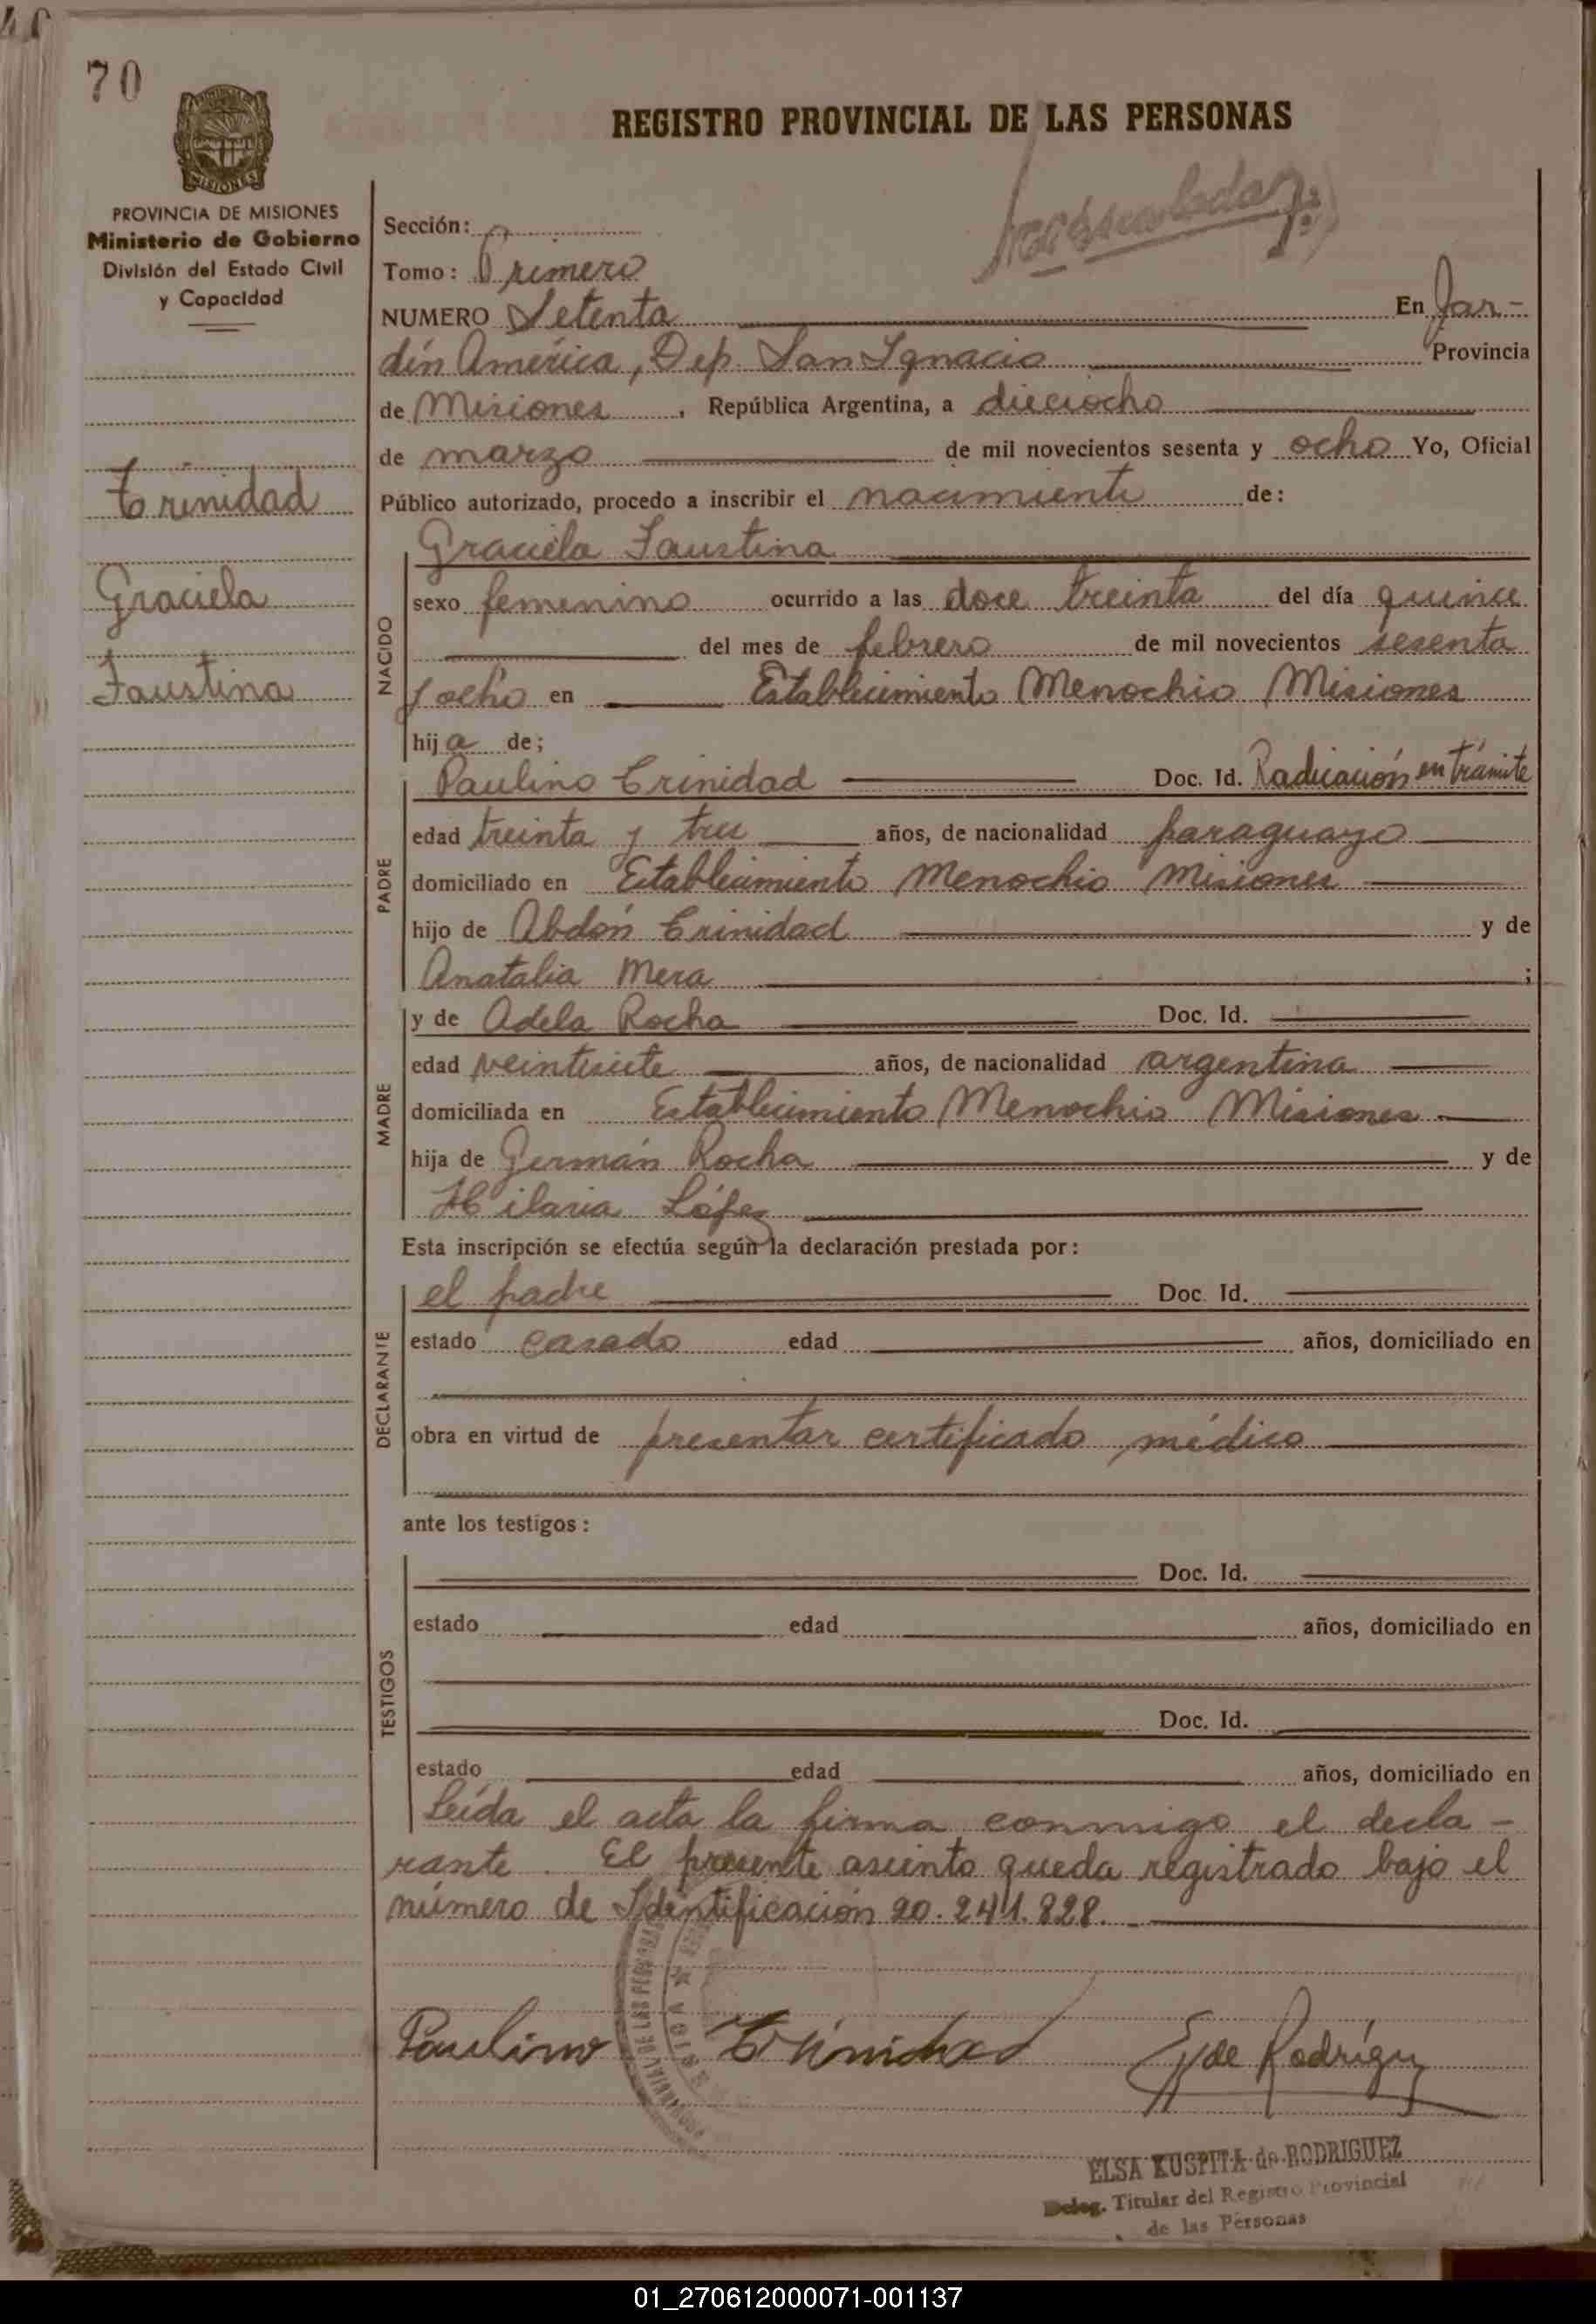 70
REGISTRO PROVINCIAL DE LAS PERSONAS
MISIONES
PROVINCIA DE MISIONES
Ministerio de Gobierno
División del Estado Civil
y Capacidad
Trinidad
Graciela
Faustina
Sección:
Tomo: Primero
NUMERO Setenta En Jar-
dín América, Dep. San Ignacio Provincia
de Misiones, República Argentina, a dieciocho
de marzo de mil novecientos sesenta y ocho Yo, Oficial
Público autorizado, procedo a inscribir el nacimiento de:
NACIDO
Graciela Faustina
sexo femenino ocurrido a las doce treinta del día quince
del mes de febrero de mil novecientos sesenta
y ocho en Establecimiento Menochio Misiones
hija de;
PADRE
Paulino Trinidad Doc. Id. Radicación en trámite
edad treinta y tres años, de nacionalidad paraguayo
domiciliado en Establecimiento Menochio Misiones
hijo de Abdón Trinidad y de
Anatalia Mera ;
MADRE
y de Adela Rocha Doc. Id.
edad veintisiete años, de nacionalidad argentina
domiciliada en Establecimiento Menochio Misiones
hija de Germán Rocha y de
Hilaria López
Esta inscripción se efectúa según la declaración prestada por:
DECLARANTE
el padre Doc. Id.
estado casado edad años, domiciliado en
obra en virtud de presentar certificado médico
ante los testigos:
TESTIGOS
Doc. Id.
estado edad años, domiciliado en
Doc. Id.
estado edad años, domiciliado en
Leída el acta la firma conmigo el decla-
rante. El presente asiento queda registrado bajo el
número de Identificación 20.241.828.
Paulino Trinidad Eyde Rodríguez
ELSA KUSPITA de RODRIGUEZ
Deleg. Titular del Registro Provincial
de las Personas
01_270612000071-001137